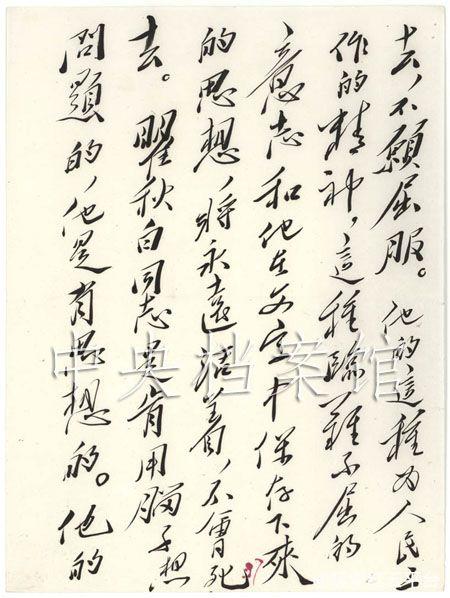 去，不願屈服。他的這種为人民工
作的精神，這種臨難不屈的
意志和他在文字中保存下來
的思想，將永遠活着，不會死
去。瞿秋白同志是肯用腦子想
問題的，他是有思想的。他的
中央档案馆